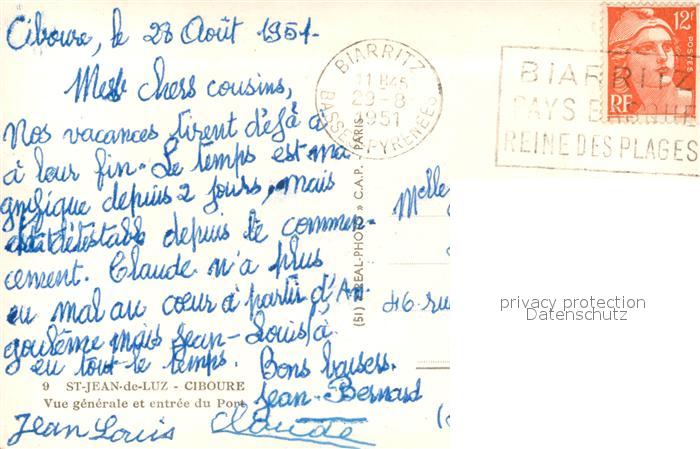 Ciboure, le 28 Août 1951.
Mes chers cousins,
Nos vacances tirent déjà à
leur fin. Le temps est ma
gnifique depuis 2 jours, mais
était détestable depuis le commen-
cement. Claude n'a plus
eu mal au cœur à partir d'An
goulême mais Jean-Louis à
eu tout le temps. Bons baisers.
Jean-Bernard
Jean Louis Claude
9 ST-JEAN-de-LUZ - CIBOURE
Vue générale et entrée du Port
(51) « REAL-PHOTO » C.A.P. - PARIS
BIARRITZ
11 H45
29-8
1951
BASSES-PYRENEES
BIARRITZ
PAYS BASQUE
REINE DES PLAGES
12F
POSTES
RF
Melle
46 rue
privacy protection
Datenschutz